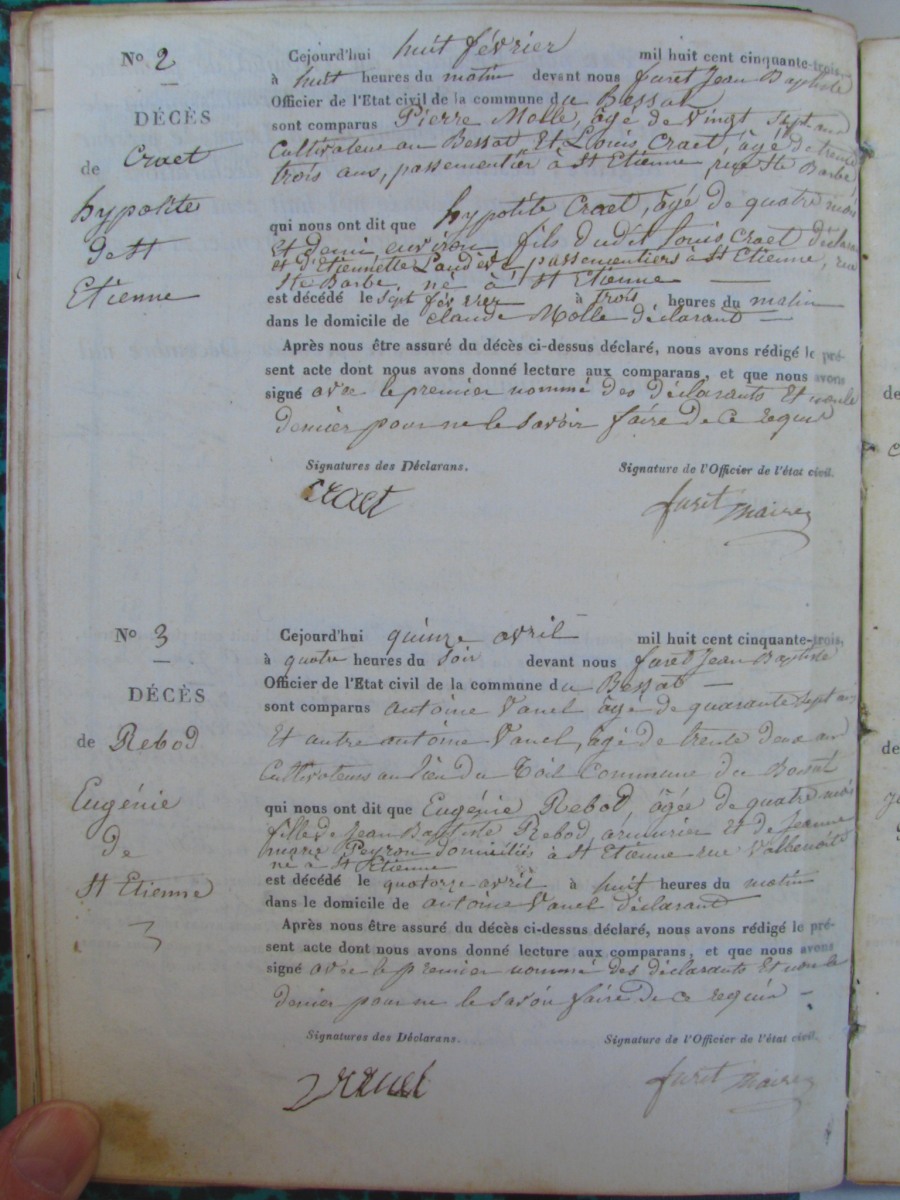 No 2
DÉCÈS
de Craet
hypolite
de St
Etienne
Cejourd'hui huit février mil huit cent cinquante-trois,
à huit heures du matin devant nous faret Jean Baptiste
Officier de l'Etat civil de la commune du Bessat
sont comparus Pierre Molle, âgé de vingt sept ans
Cultivateur au Bessat Et Louis Craet, âgé de trente
trois ans, passementier à St Etienne, rue Ste Barbe,
qui nous ont dit que hypolite Craet, âgé de quatre mois
et demi environ fils dudit Louis Craet déclarant
et d'Etiennette passementiers à St Etienne, rue
Ste Barbe, né à St Etienne
est décédé le sept février à trois heures du matin
dans le domicile de claude Molle déclarant
Après nous être assuré du décès ci-dessus déclaré, nous avons rédigé le pré-
sent acte dont nous avons donné lecture aux comparans, et que nous avons
signé avec le premier nommé des déclarants Et non le
dernier pour ne le savoir faire de ce requis
Signatures des Déclarans.
Signature de l'Officier de l'état civil.
Craet
faret Maire
No 3
DÉCÈS
de Rebod
Eugénie
De
St Etienne
Cejourd'hui quinze avril mil huit cent cinquante-trois,
à quatre heures du soir devant nous faret Jean Baptiste
Officier de l'Etat civil de la commune du Bessat
sont comparus antoine Vanel âgé de quarante sept ans
Et autre antoine Vanel, âgé de trente deux ans
Cultivateurs au lieu du Toil Commune du Bessat
qui nous ont dit que Eugénie Rebod, âgée de quatre mois
fille de Jean Baptiste Rebod, armurier Et de Jeanne
marie Peyron domiciliés à St Etienne rue Valbenoite
né à St Etienne
est décédé le quatorze avril à huit heures du matin
dans le domicile de antoine Vanel déclarant
Après nous être assuré du décès ci-dessus déclaré, nous avons rédigé le pré-
sent acte dont nous avons donné lecture aux comparans, et que nous avons
signé avec le premier nommé des déclarants Et non le
dernier pour ne le savoir faire de ce requis
Signatures des Déclarans.
Signature de l'Officier de l'état civil.
Vanel
faret Maire
de
de